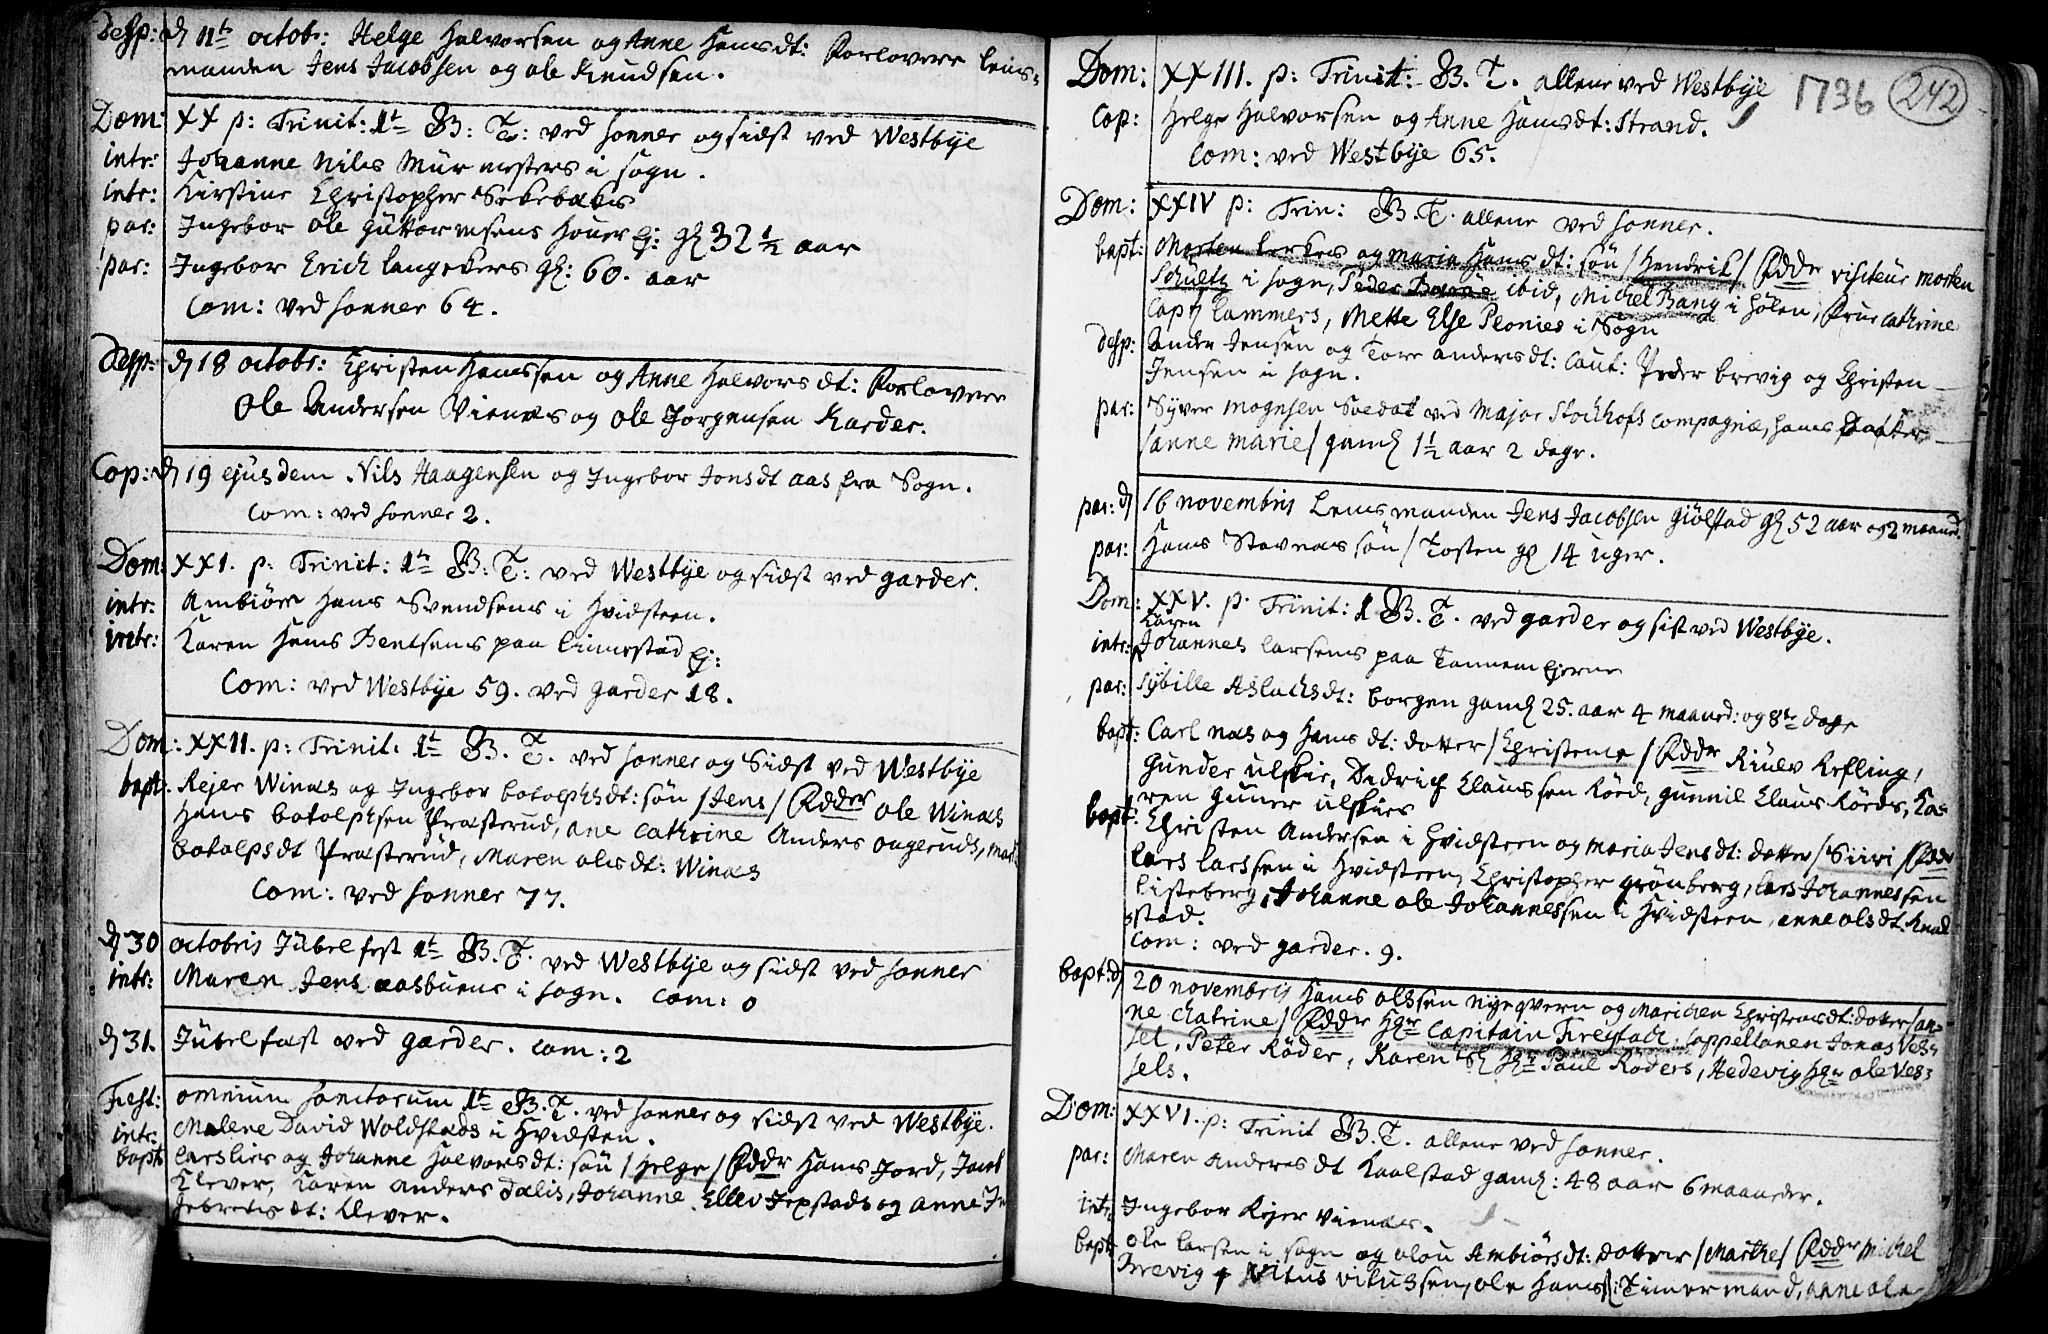 Desp: d 11te octobr: Helge Halvorsen og Anne Hansdt: Forlovere lens-
manden Jens Jacobsen og ole Knudsen.
Dom: XX p: Trinit: 1te B: T: ved sonner og sidst ved Westbye
intr: Johanne Nils Mürmesters i sogn.
intr: Kirstine Christopher
par: Ingebor ole Guttormsens Houer Ej: gl 32 1/2 aar
par: Ingebor Erich langekers gl: 60. aar
Com: ved sonner 64.
Desp: d 18 octobr: Christen Hanssen og Anne Halvorsdt: Forlovere
Ole Andersen Vienæs og ole Jørgensen Karder.
Cop: d 19 ejusdem Nils Haagensen og Ingebor Jonsdt aas fra Sogn.
Com: ved sonner 2.
Dom: XXI. p: Trinit: 1te B: T: ved Westbye og sidst ved garder.
intr: Ambiør Hans Svendsens i Hvidsteen.
intr: Karen Hans Bentsens paa Linnestad Ej:
Com: ved Westbye 59. ved garder 18.
Dom: XXII. p: Trinit. 1te B. T. ved sonner og Sidst ved Westbye
bapt: Rejer Winæs og Ingebor botolphsdt: søn /Jens/ Fddr ole Winæs
Hans botolphsen Præsterud, ane Cathrine Anders aageruds,
botolpsdt Præsterud, Maren olisdt: Winæs
Com: ved sonner 77.
d 30 octobris Jübelfest 1te B. T. ved Westbye og sidst ved sonner
intr: Maren Jens aasbuens i sogn. Com: 0
d 31. Jübelfæst ved garder. com: 2
Fest: omnium sanctorum 1te B. T. ved sonner og sidst ved Westbye.
intr: Malene David Woldstads i Hvidsten.
bapt: Lars lies og Johanne Halvorsdt: søn /Helge/ Fddr Hans Jord, Jacob
Klever, Karen anders Dælis, Johanne Ellev Jepstads og anne In-
gebretsdt: Klever.
1736 242
Dom: XXIII. p: Trinit: B. T. allene ved Westbye
Cop: Helge Halvorsen og Anne Hansdt: Strand.
Com: ved Westbye 65.
Dom: XXIV p: Trin: B. T. allene ved sonner.
bapt: Morten lerkes og maria Hansdt: søn /Hendrik/ Fddr visiteur morten
Schultz i sogn, Peder ibid, Michel Bang i Hølen, Frue Cathrine
Cap: Lammers, Mette Else Peonies i Sogn
desp: Ander Jensen og Tore andersdt: Caut: Peder brevig og Christen
Jensen i sogn.
par: Syver mognsen Soldat ved Major Stockhofs Compagnie, hans Datter
/anne marie/ gaml 1 1/2 aar 2 dage.
par: d 16 novembris Lensmanden Jens Jacobsen Giølstad gl 52 aar og 2 maaned.
par: Hans Stavnes søn /Tosten gl 14 uger.
Dom: XXV. p: Trinit: 1 B. T. ved garder og sist ved Westbye.
Karen
intr: Johannes larsens paa Tannem Ejerne
par: Sybille Aslachsdt: borgen gaml 25. aar 4 maaned: og 8te dage
bapt: Carl næs og Hansdt: dotter /Christense/ Fddr Riulv Kefling,
Gunder ulskie, Didrich Clausen Rörd, gunnil Claus Rörds, Ka-
ren Guner ulskies
bapt: Christen Andersen i Hvidsteen og maria Jensdt: dotter /Siiri/ Fddr
Lars larssen i Hvidsteen, Christopher grønberg, lars Johannessen
Listeberg, Johanne ole Johannessen i Hvidsteen, anne olsdt: Knal-
stad.
Com: ved garder. 9.
bapt: d 20 novembris Hans olssen nyeqvern og Marichen Christensdt: dotter /an-
ne Chatrine/ Fddr Hgr Capitain Treystach, Cappellanen Jonas Ves-
sel, Peter Röder, Karen Hgr Paul Röders, Hedevig Hgr ole Ves-
sels.
Dom: XXVI. p: Trinit B. T. allene ved sonner.
par: Maren Andersdt Kaalstad gaml: 48 aar 6 maaneder.
intr: Ingebor Rejer Vienæs.
bapt: ole larsen i sogn og olou Ambiørsdt: dotter /Marthe/ Fddr Michel
Brevig, Vitus vitussen, ole Hans: Timermand, anne ole